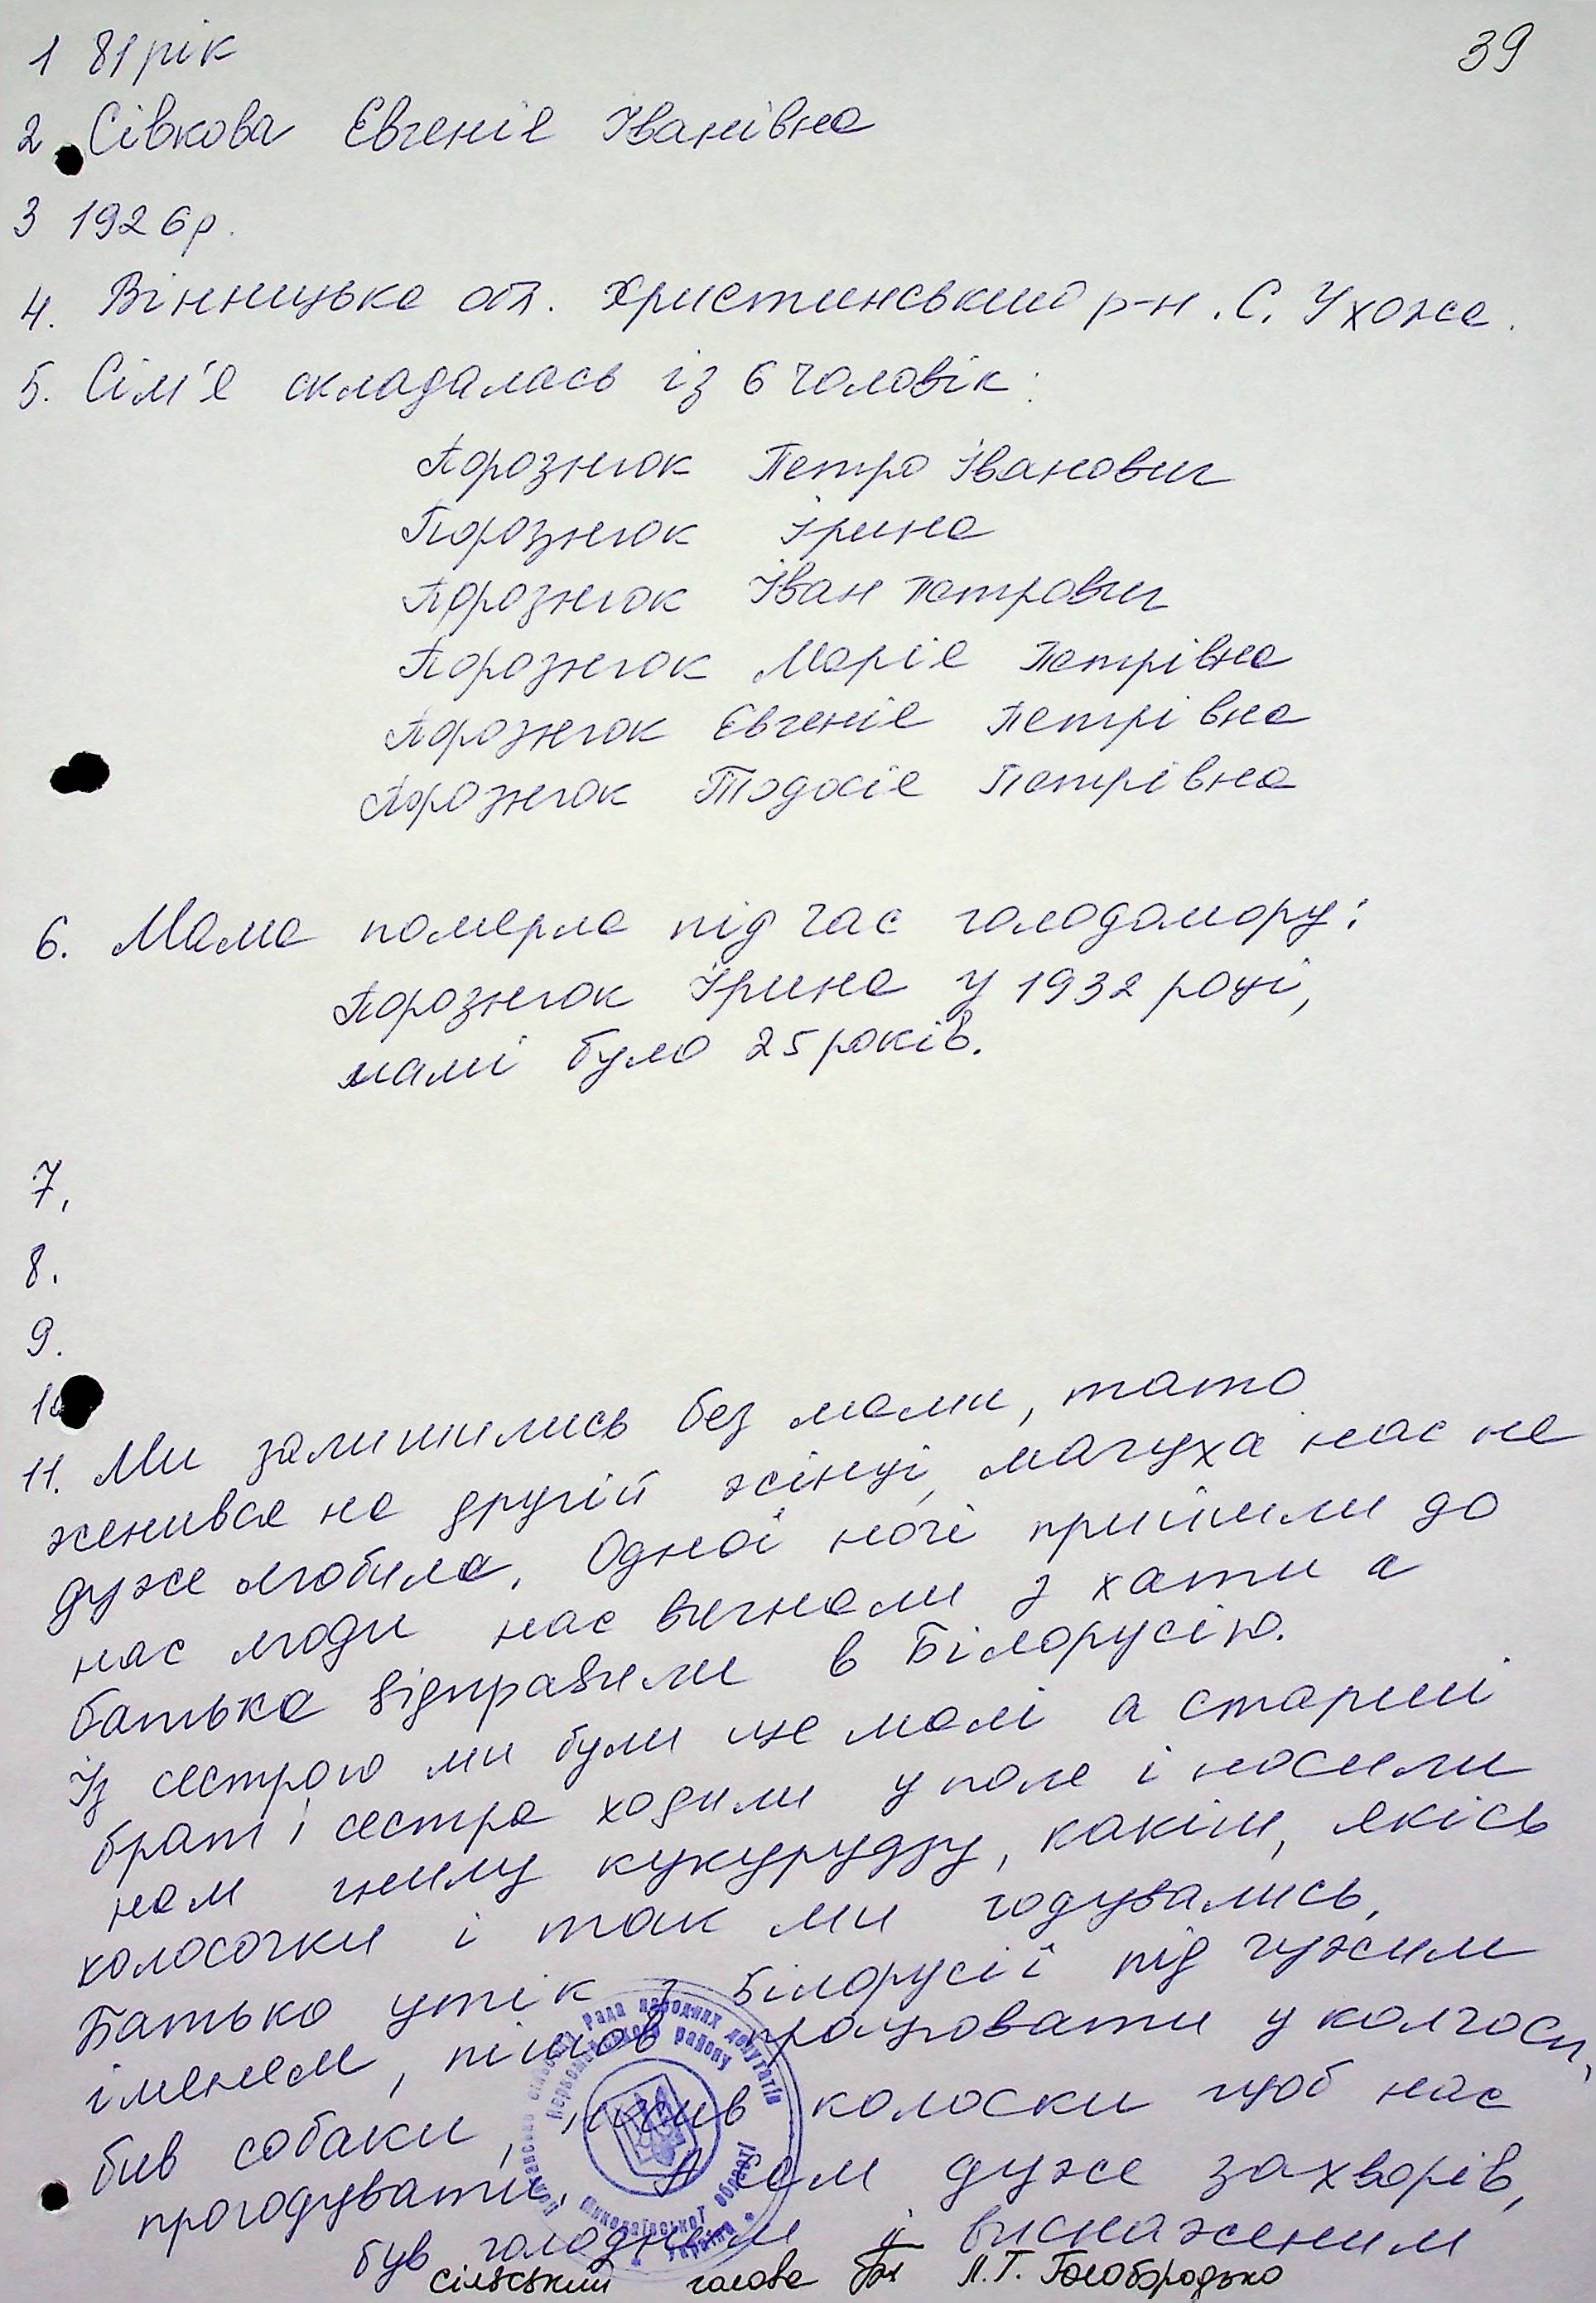 39
1 81 рік
2. Сівкова Євгенія Іванівна
3 1926 р.
4. Вінницька обл. Христинський р-н. С. Ухожа.
5. Сім'я складалась із 6 чоловік:
Порознюк Петро Іванович
Порознюк Ірина
Порознюк Іван Петрович
Порознюк Марія Петрівна
Порознюк Євгенія Петрівна
Порознюк Тодосія Петрівна
6. Мама померла під час голодомору:
Порознюк Ірина у 1932 році,
мамі було 25 років.
7.
8.
9.
10
11. Ми залишились без мами, тато
женився на другій жінці, мачуха нас не
дуже любила. Одної ночі прийшли до
нас люди нас вигнали з хати а
батька відправили в Білорусію.
Із сестрою ми були ще малі а старші
брат і сестра ходили у поле і носили
нам гнилу кукурудзу, качани, якісь
колосочки і так ми годувались.
Батько утік з Білорусії під чужим
іменем, пішов працювати у колгосп,
бив собаки, колоски щоб нас
прогодувати. А сам дуже захворів,
був голодним й виснаженим
рада народних депутатів
Первомайського району
Миколаївської області
* Україна *
сільський голова Л.Г. Голобородько